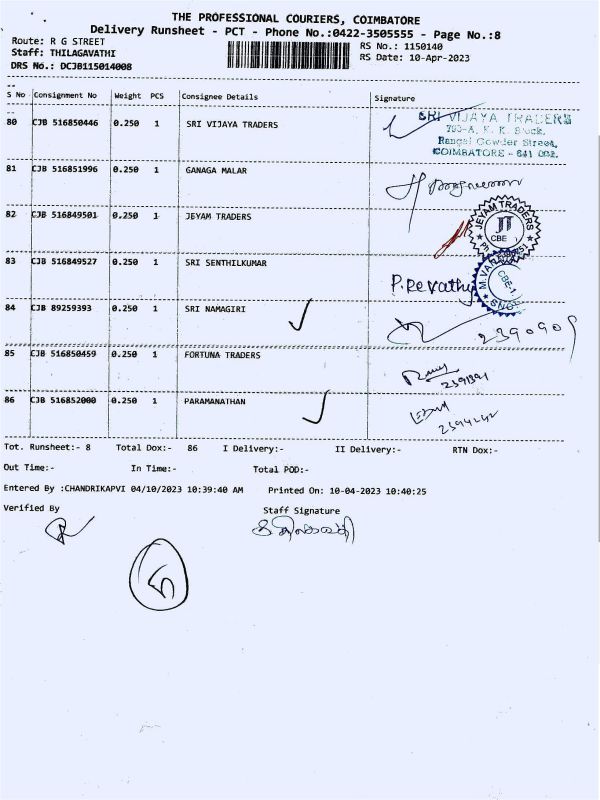 THE PROFESSIONAL COURIERS, COIMBATORE
Delivery Runsheet - PCT - Phone No.:0422-3505555 - Page No.:8
Route: R G STREET RS No.: 1150140
Staff: THILAGAVATHI RS Date: 10-Apr-2023
DRS No.: DCJB115014008
S No Consignment No Weight PCS Consignee Details Signature
80 CJB 516850446 0.250 1 SRI VIJAYA TRADERS
SRI VIJAYA TRADERS
793-A, K. K. Block,
Rangai Gowder Street,
COIMBATORE - 641 001.
81 CJB 516851996 0.250 1 GANAGA MALAR
82 CJB 516849501 1 JEYAM TRADERS
JEYAM TRADERS
JT
CBE
83 CJB 516849527 0.250 1 SRI SENTHILKUMAR P. Revathy
CBE-1
84 CJB 89259393 0.250 1 SRI NAMAGIRI 2390909
85 CJB 516850459 0.250 1 FORTUNA TRADERS
86 CJB 516852000 0.250 1 PARAMANATHAN
2394242
Tot. Runsheet:- 8 Total Dox:- 86 I Delivery:- II Delivery:- RTN Dox:-
Out Time:- In Time:- Total POD:-
Entered By :CHANDRIKAPVI 04/10/2023 10:39:40 AM Printed On: 10-04-2023 10:40:25
Verified By Staff Signature